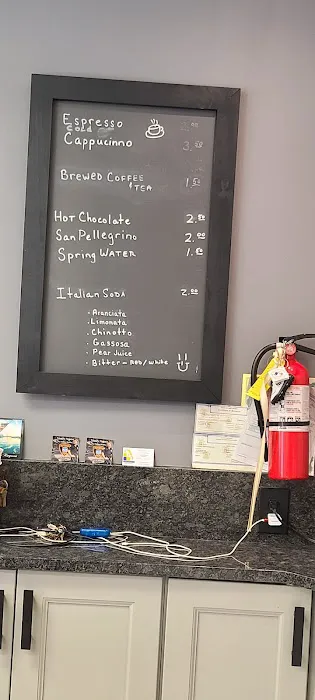 Espresso
Cold
Cappucinno 3.
Brewed Coffee 1.50
& Tea
Hot Chocolate 2.50
San Pellegrino 2.00
Spring Water 1.50
Italian Soda 2.00
. Aranciata
. Limonata
. Chinotto
. Gassosa
. Pear Juice
. Bitter - Red/White